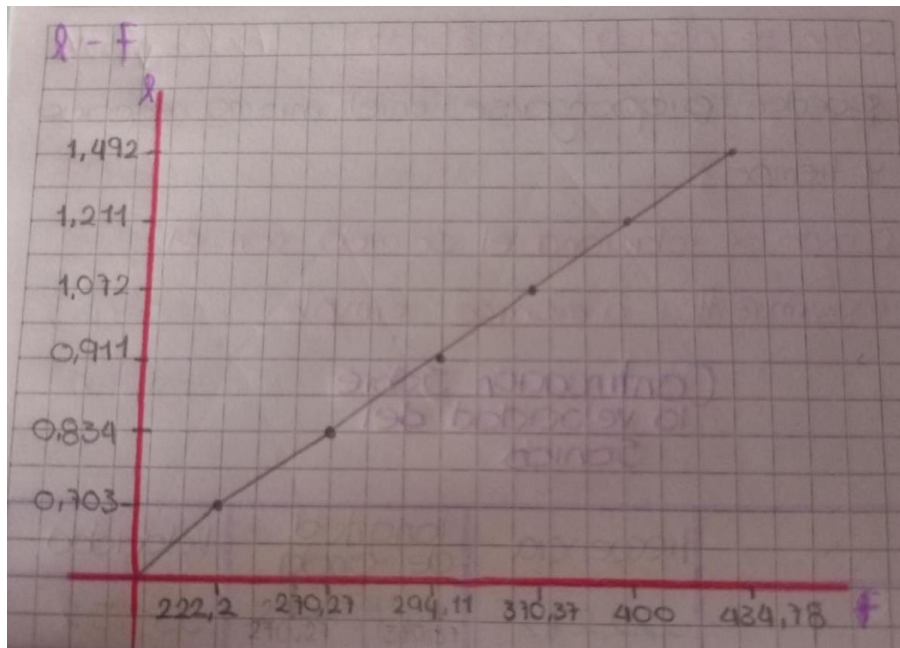 l - f
l
1,492
1,211
1,072
0,911
0,834
0,703
222,2 270,27 294,11 370,37 400 434,78 f